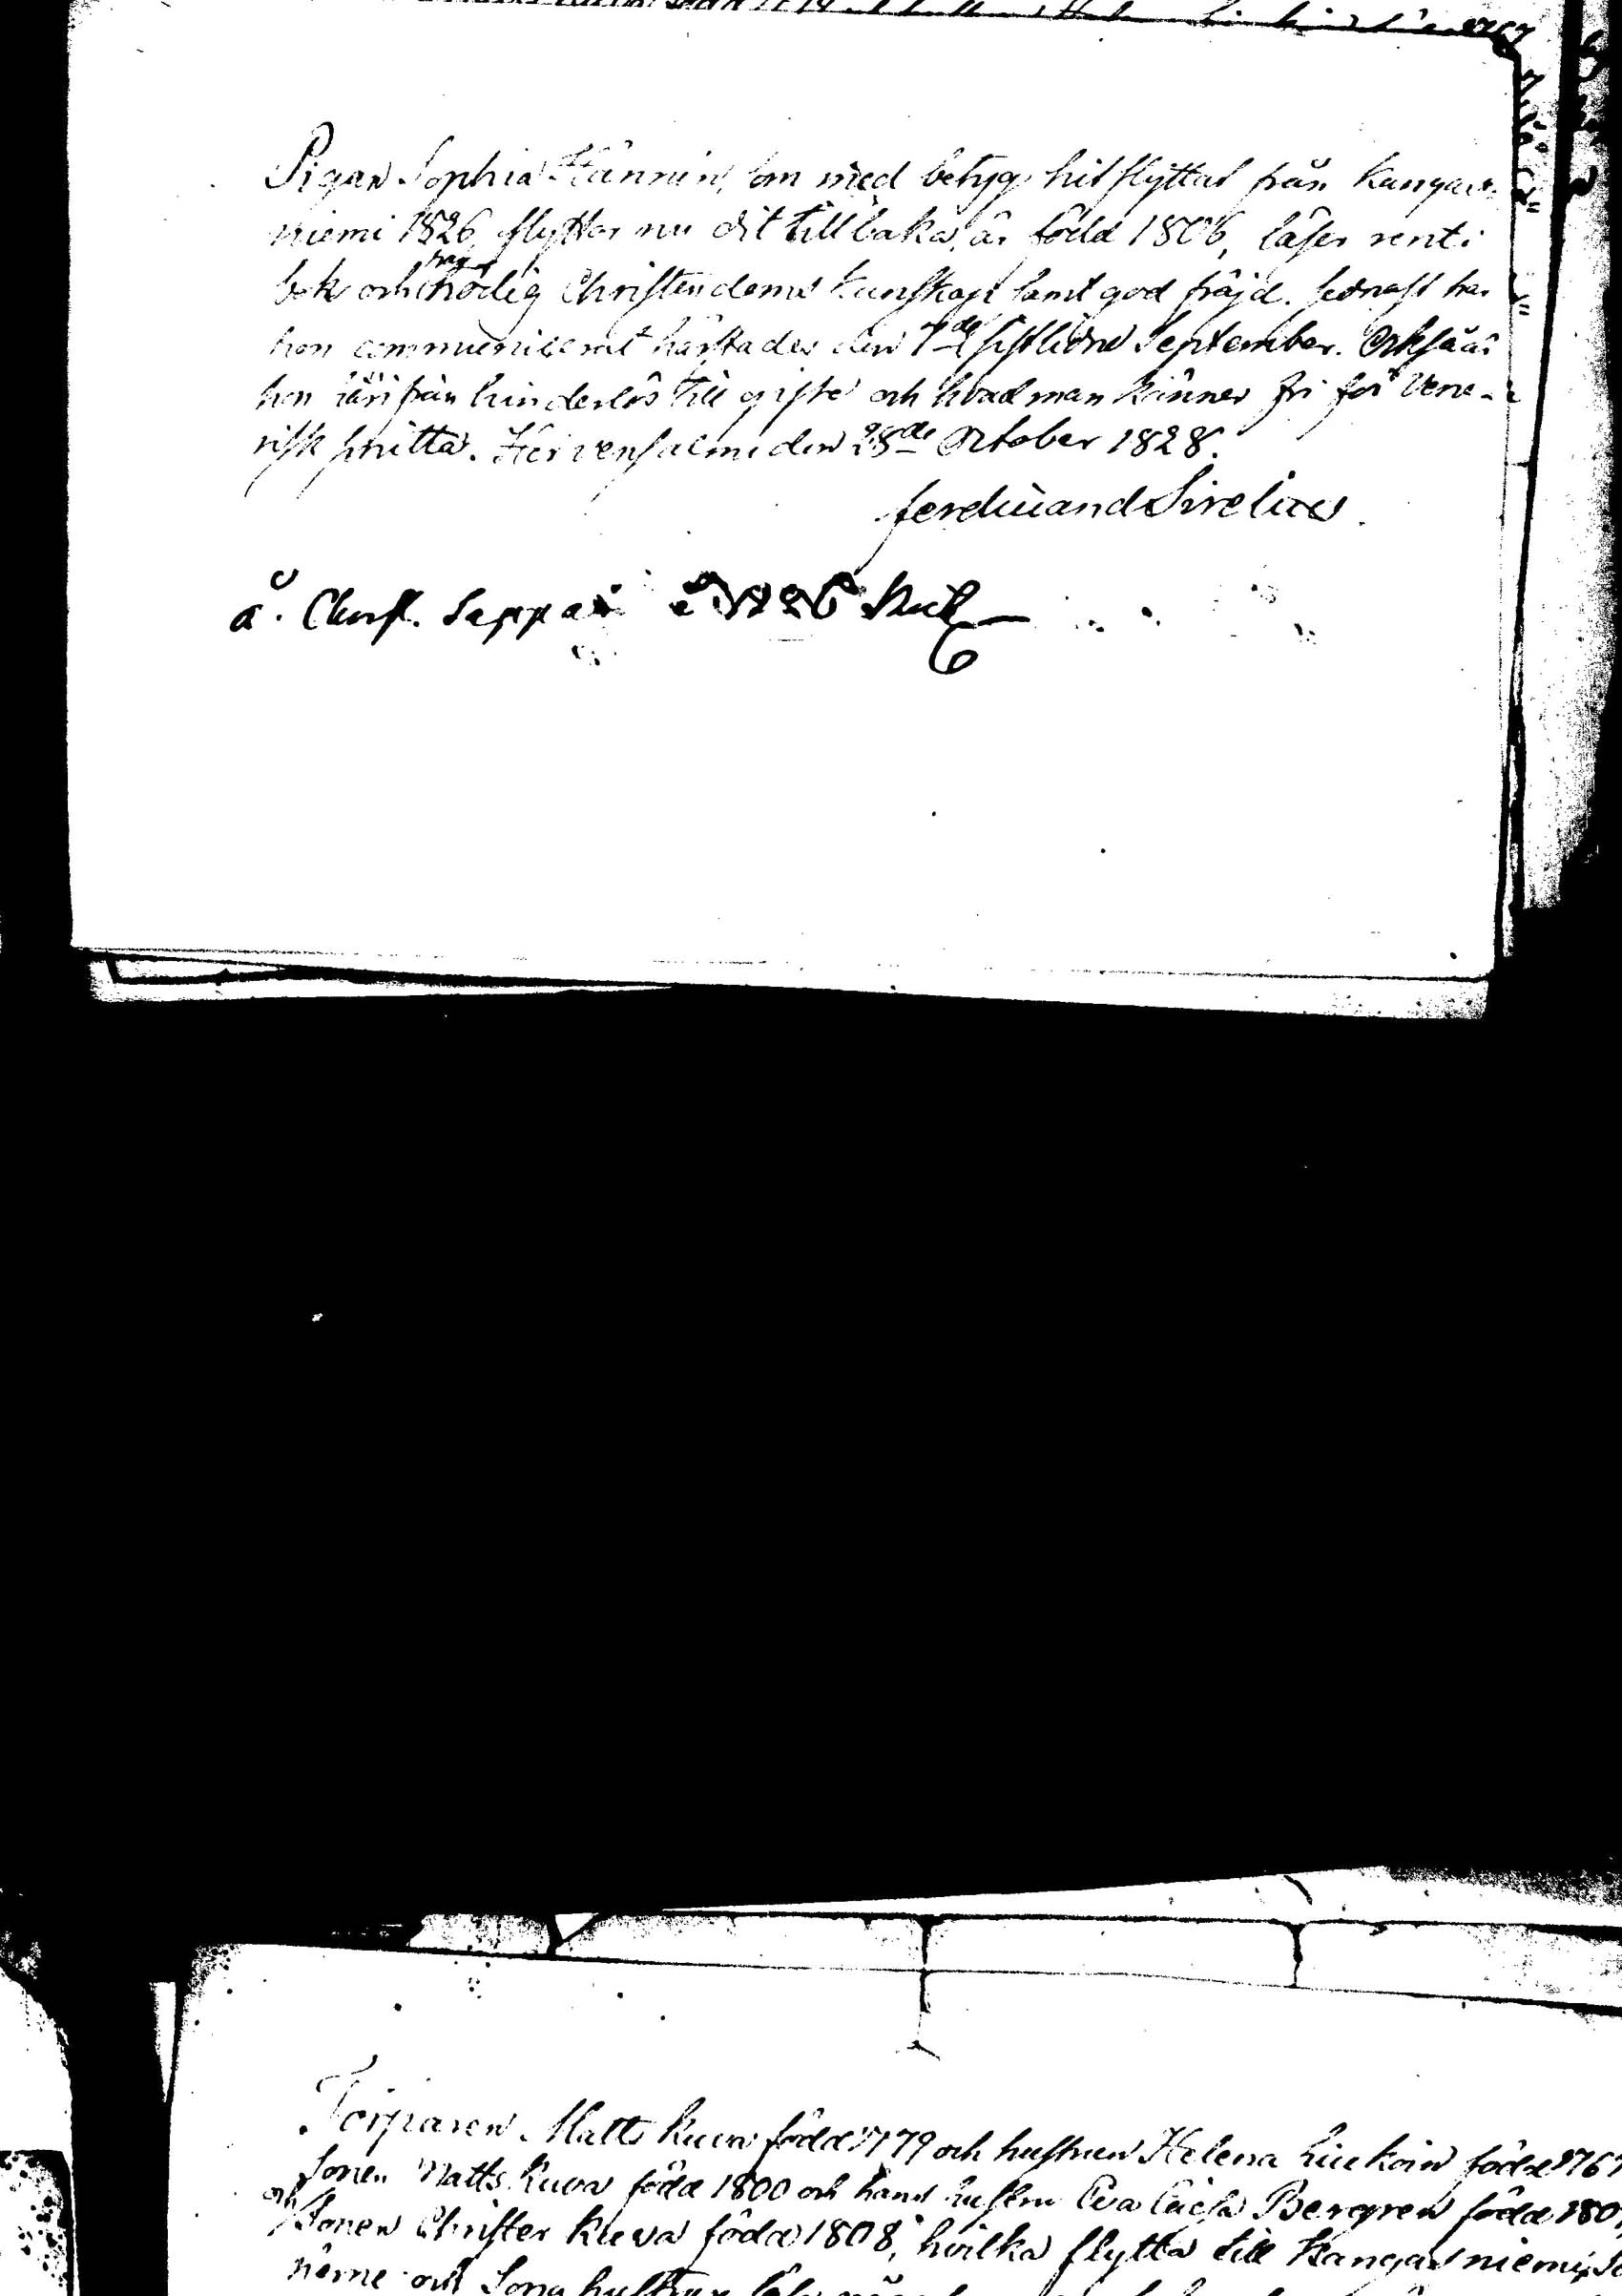 Pigan Sophia Hännin, som med betyg hitflyttat från Kangas-
niemi 1826, flyttar nu dit tillbaka, är född 1806, läser rent i
bok och nödig Christendoms kunskap samt god fräjd. Sednast har
hon communicerat härstädes den 7de sistledne September. Också är
hon härifrån hinderlös till gifte och hvad man känner fri för Vene-
risk smitta. Hirvensalmi den 28de October 1828.
Ferdinand Sirelius
Torparen Matts Kuva född 1779 och hustrun Helena Liukoin född 176
Sonen Matts Kuva född 1800 och hans hustru Eva Caisa Bergren född 180
och Sonen Christer Kuva född 1808, hvilka flytta till Kangasniemi,